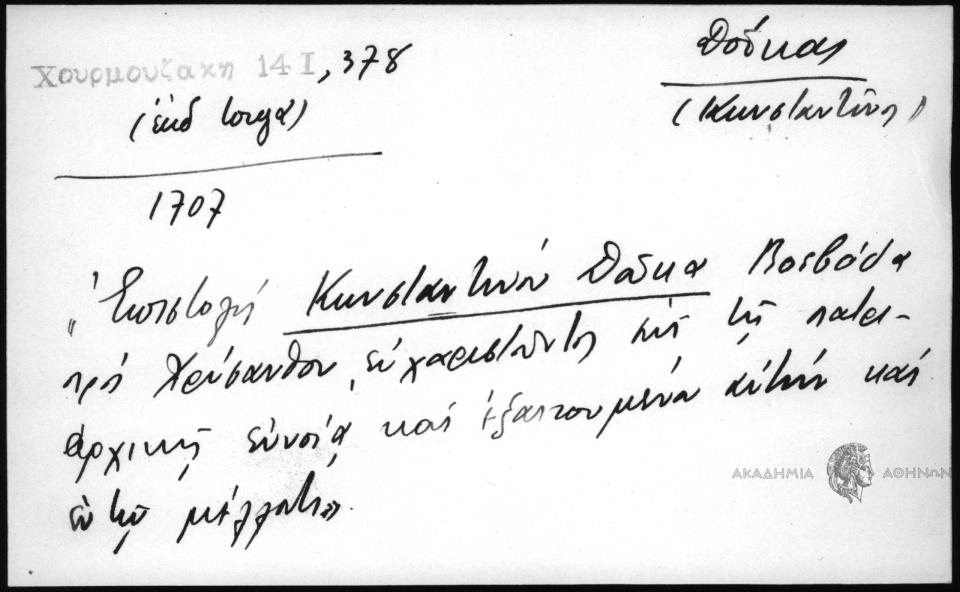 Χουρμουζακη 14 Ι, 378
(ἐκδ Ιοργα)
Δούκας
(Κωνσταντῖνος)
1707
"Ἐπιστολὴ Κωνσταντίνου Δούκα Βοεβόδα
πρὸς Χρύσανθον, εὐχαριστοῦντος ἐπὶ τῇ πατρι-
αρχικῇ εὐνοίᾳ καὶ ἐξαιτουμένου αὐτὴν καὶ
ἐν τῷ μέλλοντι».
ΑΚΑΔΗΜΙΑ ΑΘΗΝΩΝ